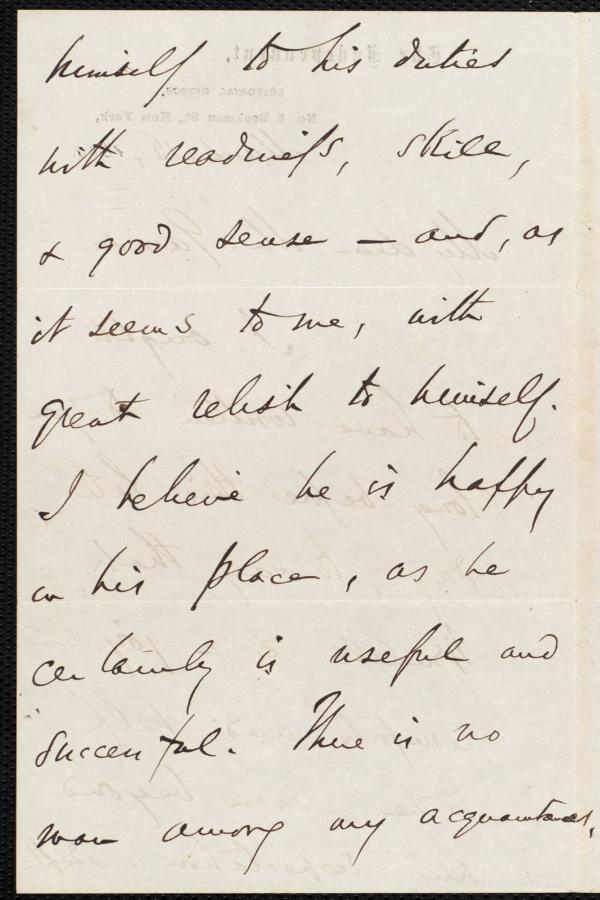 himself to his duties
with readiness, skill,
& good sense — and, as
it seems to me, with
great relish to himself.
I believe he is happy
in his place, as he
certainly is useful and
successful. There is no
man among my acquaintances,